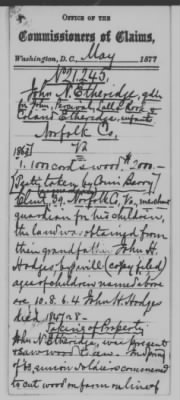 OFFICE OF THE
Commissioners of Claims,
Washington, D. C., May 1877
No 21,245.
John N. Etheridge, gdn
for John, Percival, Lulla Rook &
Eoland Etheridge, infants
Norfolk Co.
1865 Va
1. 100 cords wood $200—
[Testy taken by Orris Berry]
Clmt, 39. Norfolk Co, Va, merchant
guardian for his children,
the land was obtained from
their grandfather John H.
Hodges by will (copy filed)
ages of children named above
are, 10. 8. 6. 4 John H Hodges
died 1867 or 8—
Taking of Property
John N Etheridge, was present
& saw wood taken. In Spring
of 65 union soldiers commenced
to cut wood on farm on line of